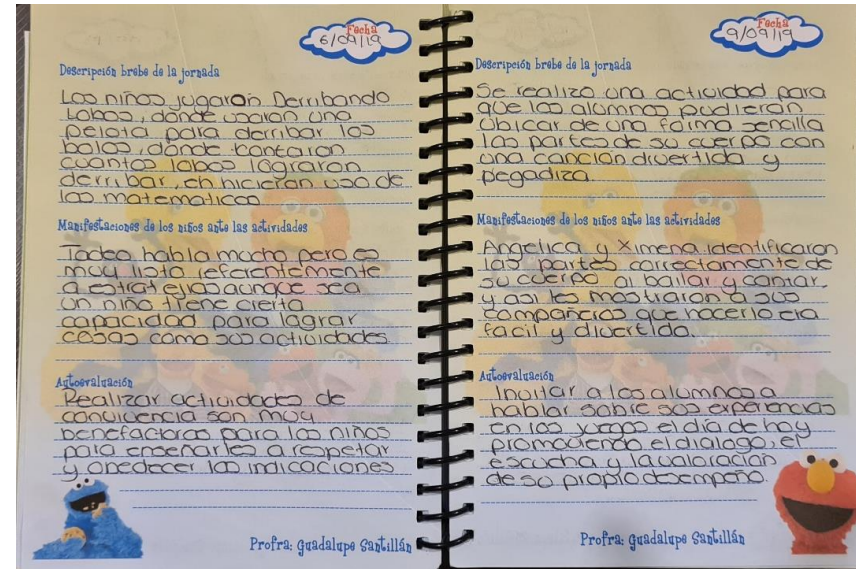 Fecha
6/09/19
Descripción brebe de la jornada
Los niños jugaron Derribando
Lobos, donde usaron una
pelota para derribar los
bolos, donde contaron
cuantos lobos lograron
derribar, eh hicieron uso de
las matematicas
Manifestaciones de los niños ante las actividades
Tadeo habla mucho pero es
muy listo referentemente
a estrategias aunque sea
un niño tiene cierta
capacidad para lograr
cosas como sus actividades
Autoevaluación
Realizar actividades de
convivencia son muy
benefactoras para los niños
para enseñarles a respetar
y obedecer las indicaciones
Profra: Guadalupe Santillán
Fecha
9/09/19
Descripción brebe de la jornada
Se realizo una actividad para
que los alumnos pudieron
Ubicar de una forma sencilla
las partes de su cuerpo con
una canción divertida y
pegadiza.
Manifestaciones de los niños ante las actividades
Angelica y Ximena identificaron
las partes correctamente de
su cuerpo al bailar y cantar
y asi les mostraron a sus
compañeros que hacerlo era
facil y divertido.
Autoevaluación
Invitar a los alumnos a
hablar sobre sus experiencias
en los juegos el día de hoy
promoviendo el dialogo, el
escucha y la valoración
de su propio desempeño.
Profra: Guadalupe Santillán